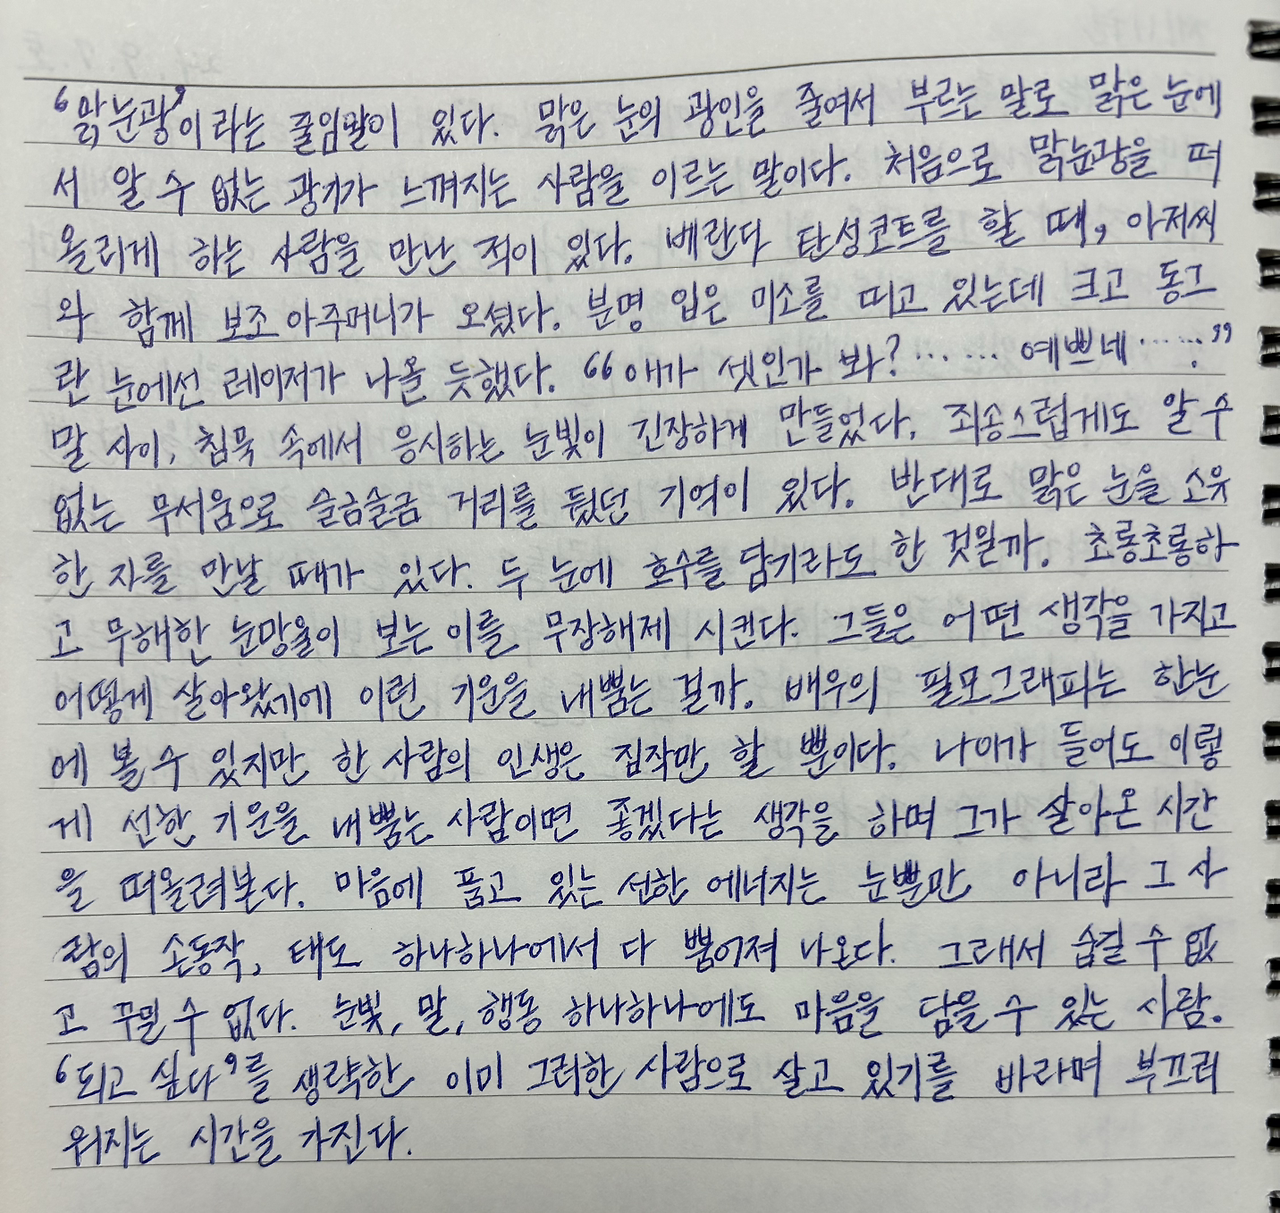 ‘맑눈광’이라는 줄임말이 있다. 맑은 눈의 광인을 줄여서 부르는 말로 맑은 눈에
서 알 수 없는 광기가 느껴지는 사람을 이르는 말이다. 처음으로 맑눈광을 떠
올리게 하는 사람을 만난 적이 있다. 베란다 탄성코트를 할 때, 아저씨
와 함께 보조 아주머니가 오셨다. 분명 입은 미소를 띠고 있는데 크고 동그
란 눈에선 레이저가 나올 듯했다. “애가 셋인가 봐? …… 예쁘네 ……”
말 사이, 침묵 속에서 응시하는 눈빛이 긴장하게 만들었다. 죄송스럽게도 알 수
없는 무서움으로 슬금슬금 거리를 뒀던 기억이 있다. 반대로 맑은 눈을 소유
한 자를 만날 때가 있다. 두 눈에 호수를 담기라도 한 것일까. 초롱초롱하
고 무해한 눈망울이 보는 이를 무장해제 시킨다. 그들은 어떤 생각을 가지고
어떻게 살아왔기에 이런 기운을 내뿜는 걸까. 배우의 필모그래피는 한눈
에 볼 수 있지만 한 사람의 인생은 짐작만 할 뿐이다. 나이가 들어도 이렇
게 선한 기운을 내뿜는 사람이면 좋겠다는 생각을 하며 그가 살아온 시간
을 떠올려본다. 마음에 품고 있는 선한 에너지는 눈뿐만 아니라 그 사
람의 손동작, 태도 하나하나에서 다 뿜어져 나온다. 그래서 숨길 수 없
고 꾸밀 수 없다. 눈빛, 말, 행동 하나하나에도 마음을 담을 수 있는 사람.
‘되고 싶다’를 생략한 이미 그러한 사람으로 살고 있기를 바라며 부끄러
워지는 시간을 가진다.